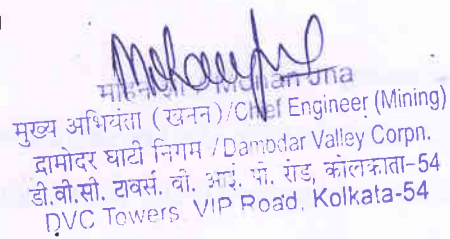 मुख्य अभियंता (खनन)/Chief Engineer (Mining)
दामोदर घाटी निगम /Damodar Valley Corpn.
डी.वी.सी. टावर्स. वी. आई. पी. रोड, कोलकाता-54
DVC Towers, VIP Road, Kolkata-54